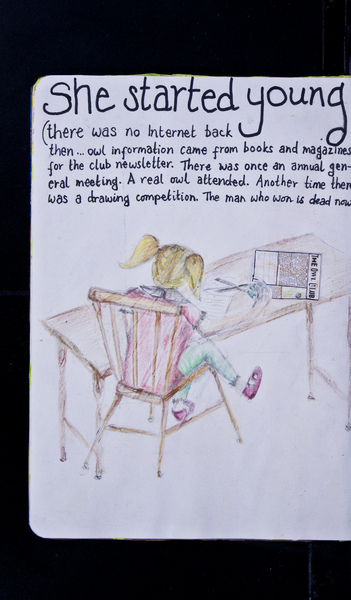 She started young
(there was no Internet back
then... owl information came from books and magazines
for the club newsletter. There was once an annual gen-
eral meeting. A real owl attended. Another time there
was a drawing competition. The man who won is dead now
THE OWL CLUB